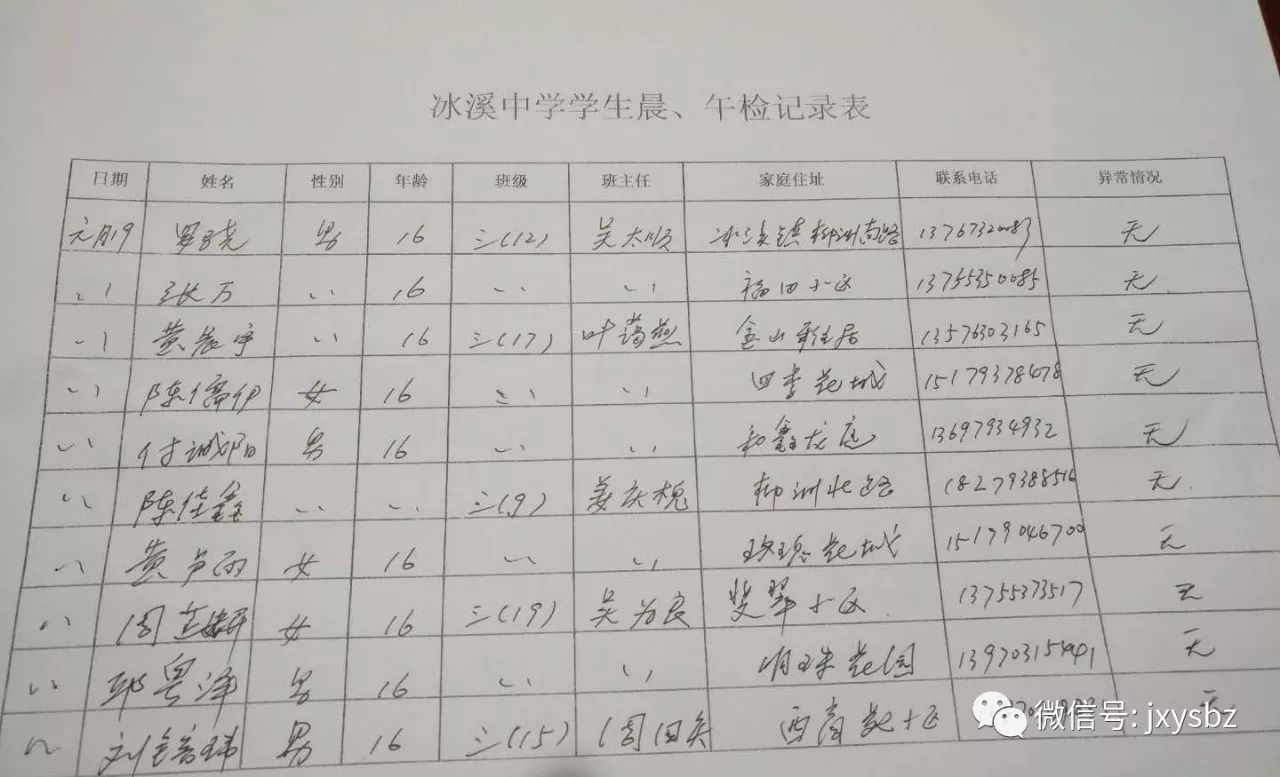 冰溪中学学生晨、午检记录表
日期 姓名 性别 年龄 班级 班主任 家庭住址 联系电话 异常情况
元月19 男 16 三(12) 吴太顺 冰溪镇柳洲南路 13767320083 无
〃 张万 〃 16 〃 〃 福田小区 13755350085 无
〃 黄宸宇 〃 16 三(17) 叶蔼燕 金山雅居 13576303165 无
〃 陈儒伊 女 16 〃 〃 四季花城 15179378478 无
〃 付诚阳 男 16 〃 〃 和鑫龙庭 13697934932 无
〃 陈佳鑫 〃 〃 三(9) 姜庆槐 柳洲北路 18279388516 无
〃 黄芦雨 女 16 〃 〃 玫瑰花城 15179046700 无
〃 周 女 16 三(19) 吴为良 翡翠小区 13755373517 无
〃 邱粤泽 男 16 〃 〃 明珠花园 13970315441 无
〃 刘 男 16 三(15) 周田英 西 花小区 无
微信号: jxysbz